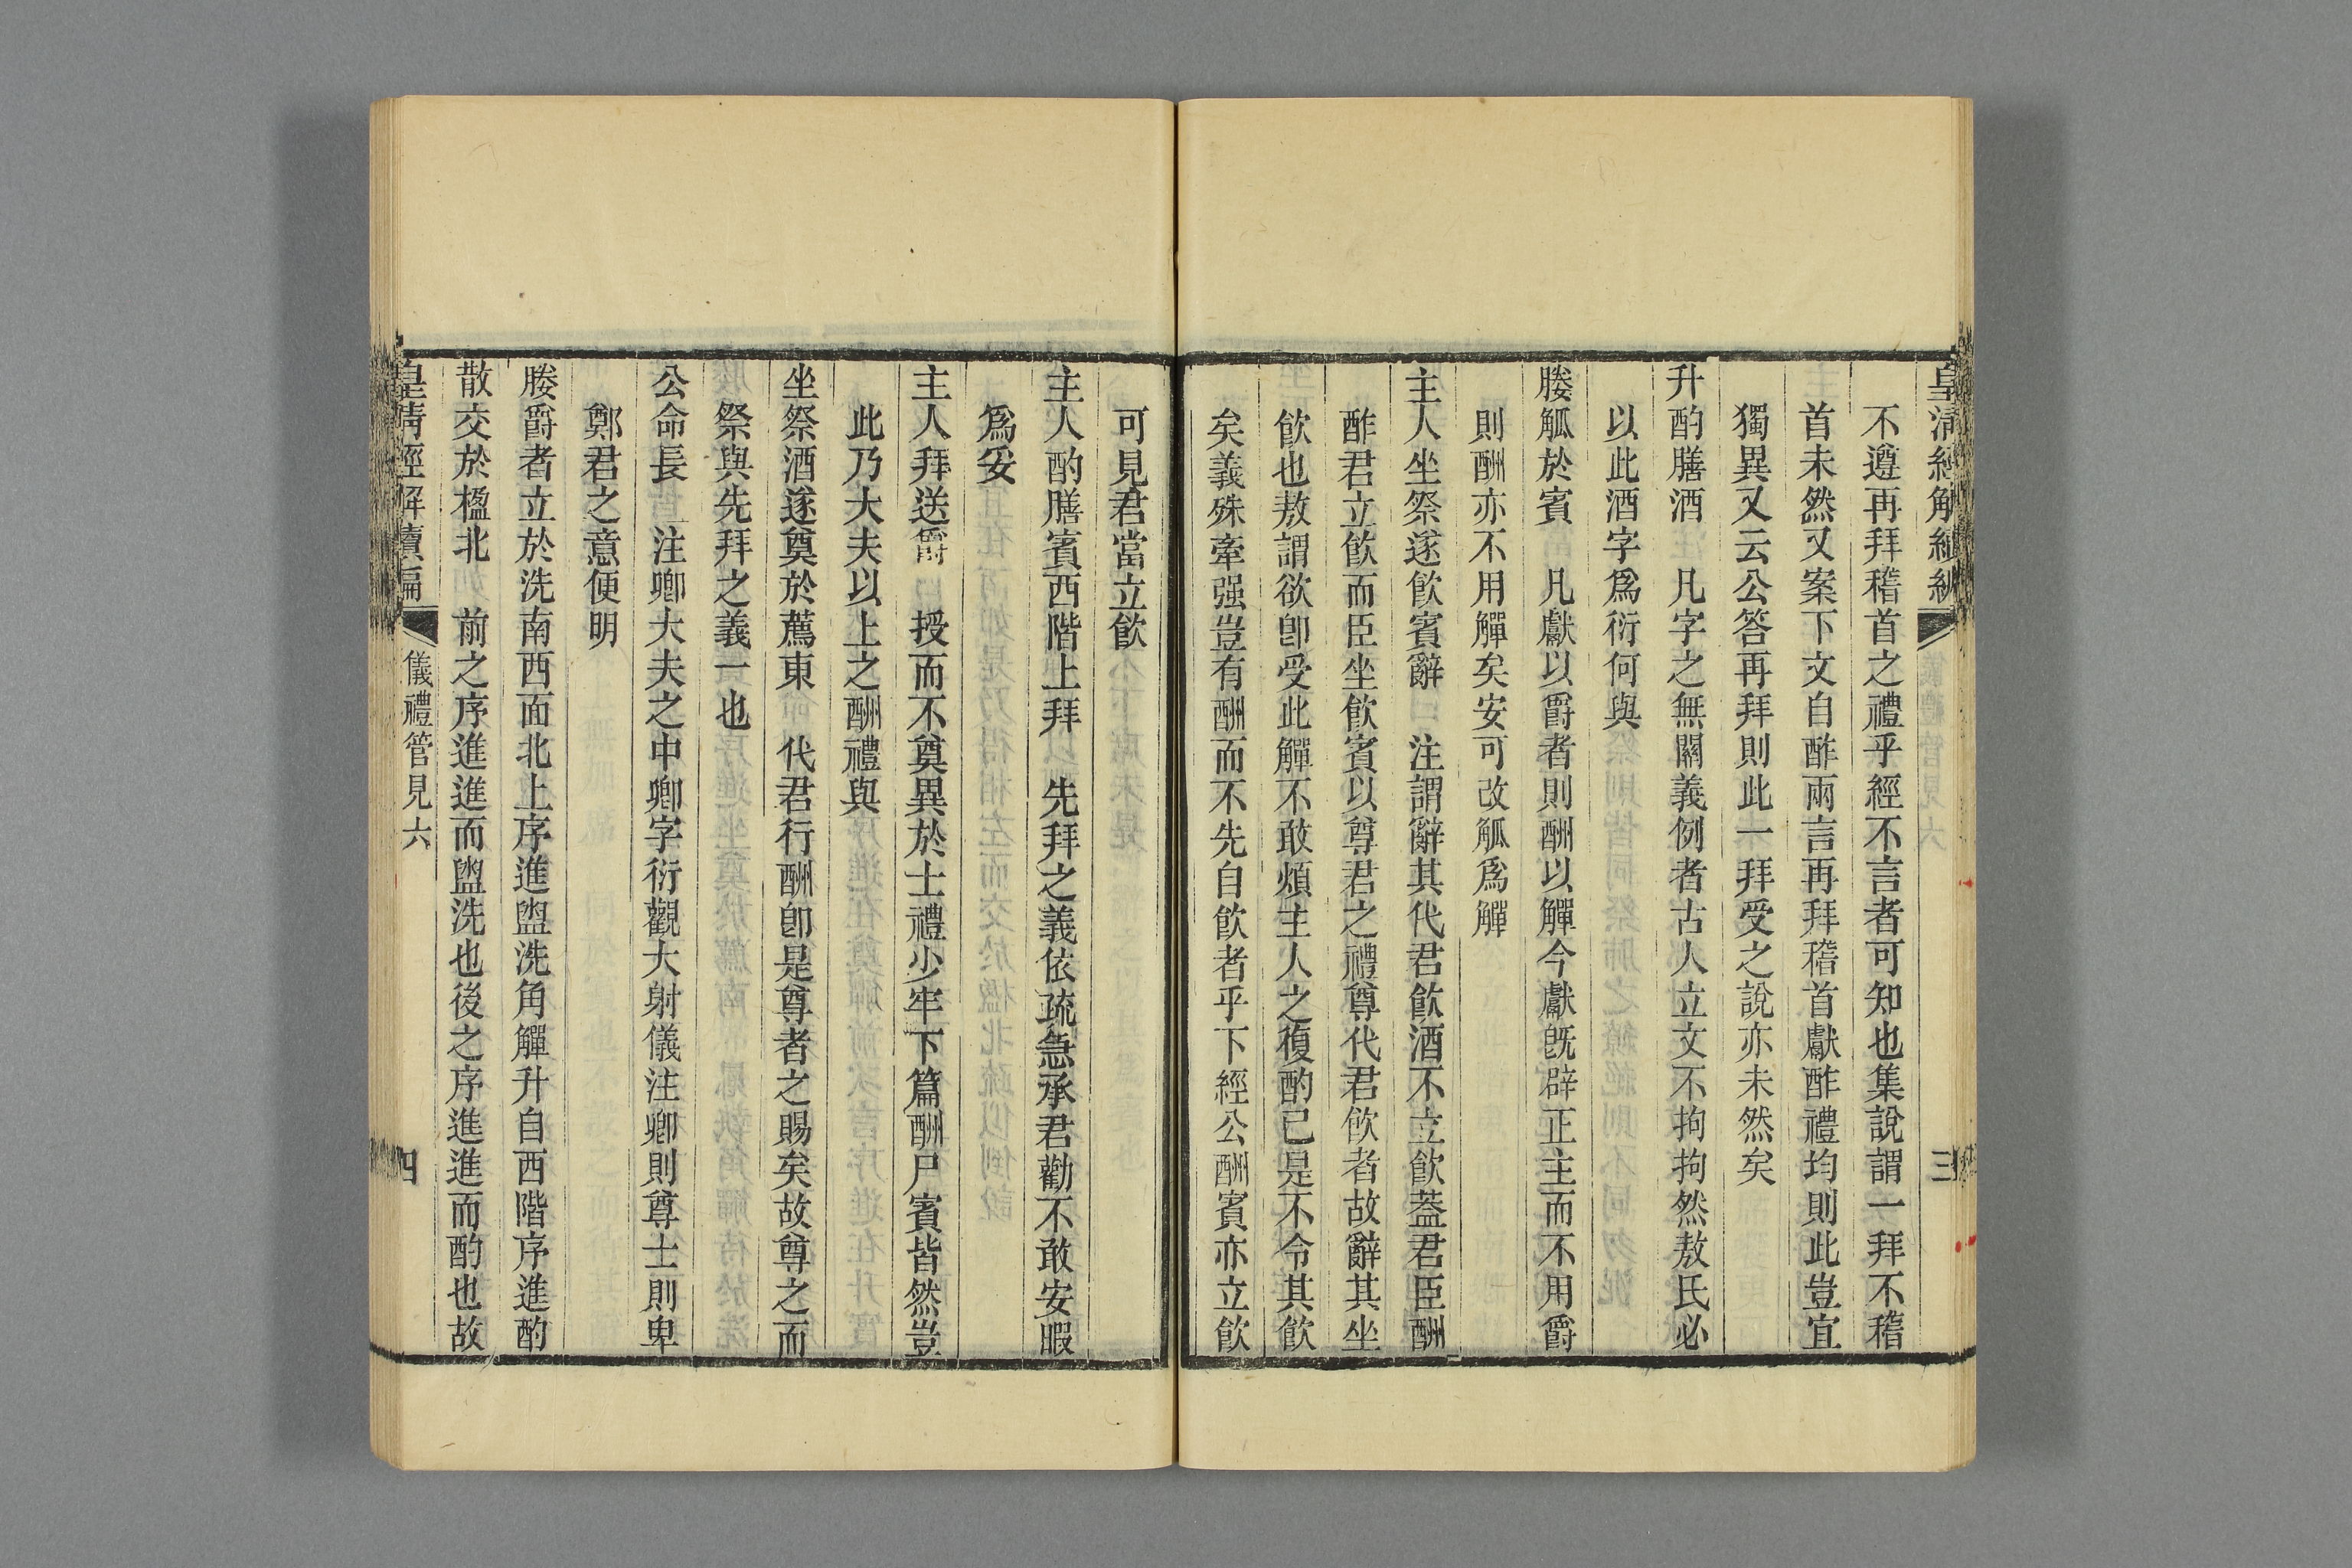 皇清經解續編 三
不遵再拜稽首之禮乎經不言者可知也集說謂一拜不稽
首未然又案下文自酢兩言再拜稽首獻酢禮均則此豈宜
獨異又云公答再拜則此一拜受之說亦未然矣
升酌膳酒 凡字之無關義例者古人立文不拘拘然敖氏必
以此酒字爲衍何與
媵觚於賓 凡獻以爵者則酬以觶今獻旣辟正主而不用爵
則酬亦不用觶矣安可改觚爲觶
主人坐祭遂飮賓辭 注謂辭其代君飮酒不立飮蓋君臣酬
酢君立飮而臣坐飮賓以尊君之禮尊代君飮者故辭其坐
飮也敖謂欲卽受此觶不敢煩主人之復酌已是不令其飮
矣義殊牽强豈有酬而不先自飮者乎下經公酬賓亦立飮
可見君當立飮
主人酌膳賓西階上拜 先拜之義依疏急承君勸不敢安暇
爲妥
主人拜送爵 授而不奠異於士禮少牢下篇酬尸賓皆然豈
此乃大夫以上之酬禮與
坐祭酒遂奠於薦東 代君行酬卽是尊者之賜矣故尊之而
祭與先拜之義一也
公命長 注卿大夫之中卿字衍觀大射儀注卿則尊士則卑
鄭君之意便明
媵爵者立於洗南西面北上序進盥洗角觶升自西階序進酌
散交於楹北 前之序進進而盥洗也後之序進進而酌也故
皇清經解續編 儀禮管見六 四